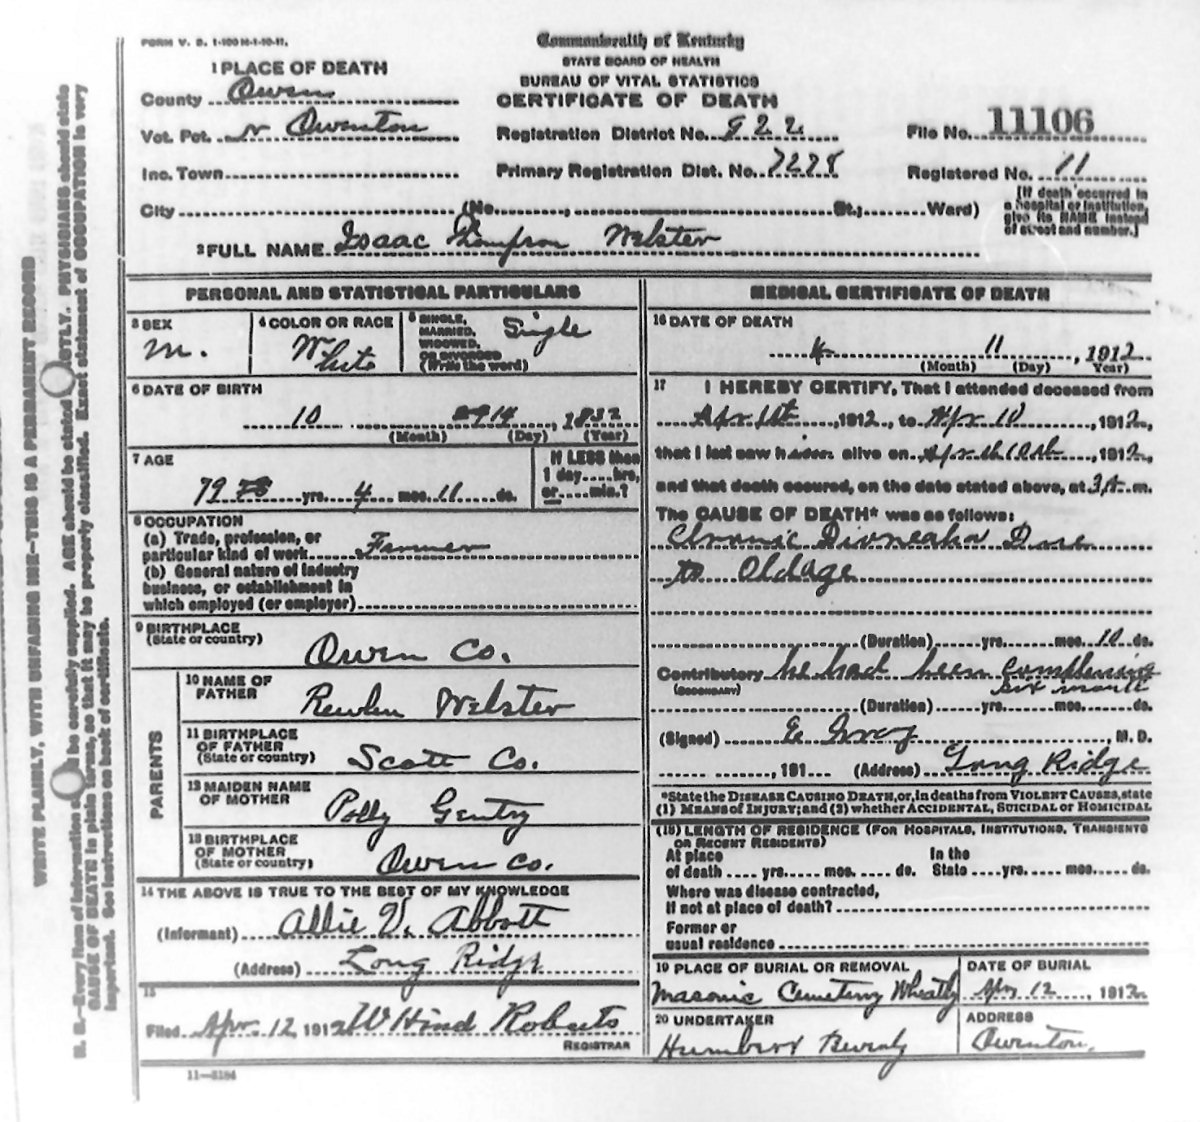 FORM V. S. 1-100 M-1-10-11.
Commonwealth of Kentucky
STATE BOARD OF HEALTH
BUREAU OF VITAL STATISTICS
CERTIFICATE OF DEATH
1 PLACE OF DEATH
County Owen
Vot. Pct. N Owenton
Inc. Town
City (No. , St.; Ward)
Registration District No. 922
Primary Registration Dist. No. 7278
File No. 11106
Registered No. 11
[If death occurred in
a hospital or institution,
give its NAME instead
of street and number.]
2 FULL NAME Isaac Thompson Webster
PERSONAL AND STATISTICAL PARTICULARS
3 SEX
M.
4 COLOR OR RACE
White
5 SINGLE,
MARRIED,
WIDOWED,
OR DIVORCED
(Write the word)
Single
6 DATE OF BIRTH
10 14, 1832
(Month) (Day) (Year)
7 AGE
79 yrs. 4 mos. 11 ds.
If LESS than
1 day hrs.
or min.?
8 OCCUPATION
(a) Trade, profession, or
particular kind of work Farmer
(b) General nature of industry
business, or establishment in
which employed (or employer)
9 BIRTHPLACE
(State or country)
Owen Co.
PARENTS
10 NAME OF
FATHER
Reuben Webster
11 BIRTHPLACE
OF FATHER
(State or country)
Scott Co.
12 MAIDEN NAME
OF MOTHER
Polly Gentry
13 BIRTHPLACE
OF MOTHER
(State or country)
Owen Co.
14 THE ABOVE IS TRUE TO THE BEST OF MY KNOWLEDGE
(Informant) Allie V. Abbott
(Address) Long Ridge
15
Filed Apr. 12 1912 W Hind Roberts
REGISTRAR
11—3184
MEDICAL CERTIFICATE OF DEATH
16 DATE OF DEATH
4 11, 1912
(Month) (Day) Year)
17 I HEREBY CERTIFY, That I attended deceased from
Apr 1st, 1912, to Apr 10, 1912,
that I last saw him alive on Apr th 10th, 1912,
and that death occured, on the date stated above, at 3 A. m.
The CAUSE OF DEATH* was as follows:
Chronic Due
to Old age
(Duration) yrs. mos. 10 ds.
Contributory he had been complaining
(SECONDARY) six month
(Duration) yrs. mos. ds.
(Signed) , M. D.
, 191 (Address) Long Ridge
*State the DISEASE CAUSING DEATH, or, in deaths from VIOLENT CAUSES, state
(1) MEANS OF INJURY; and (2) whether ACCIDENTAL, SUICIDAL or HOMICIDAL
(18) LENGTH OF RESIDENCE (FOR HOSPITALS, INSTITUTIONS, TRANSIENTS
OR RECENT RESIDENTS)
At place In the
of death yrs. mos. ds. State yrs. mos. ds.
Where was disease contracted,
If not at place of death?
Former or
usual residence
19 PLACE OF BURIAL OR REMOVAL
Masonic Cemetery Wheatly
DATE OF BURIAL
Apr 12, 1912
20 UNDERTAKER
ADDRESS
Owenton.
WRITE PLAINLY, WITH UNFADING INK—THIS IS A PERMANENT RECORD
N. B.—Every item of information should be carefully supplied. AGE should be stated EXACTLY. PHYSICIANS should state
CAUSE OF DEATH in plain terms, so that it may be properly classified. Exact statement of OCCUPATION is very
important. See instructions on back of certificate.